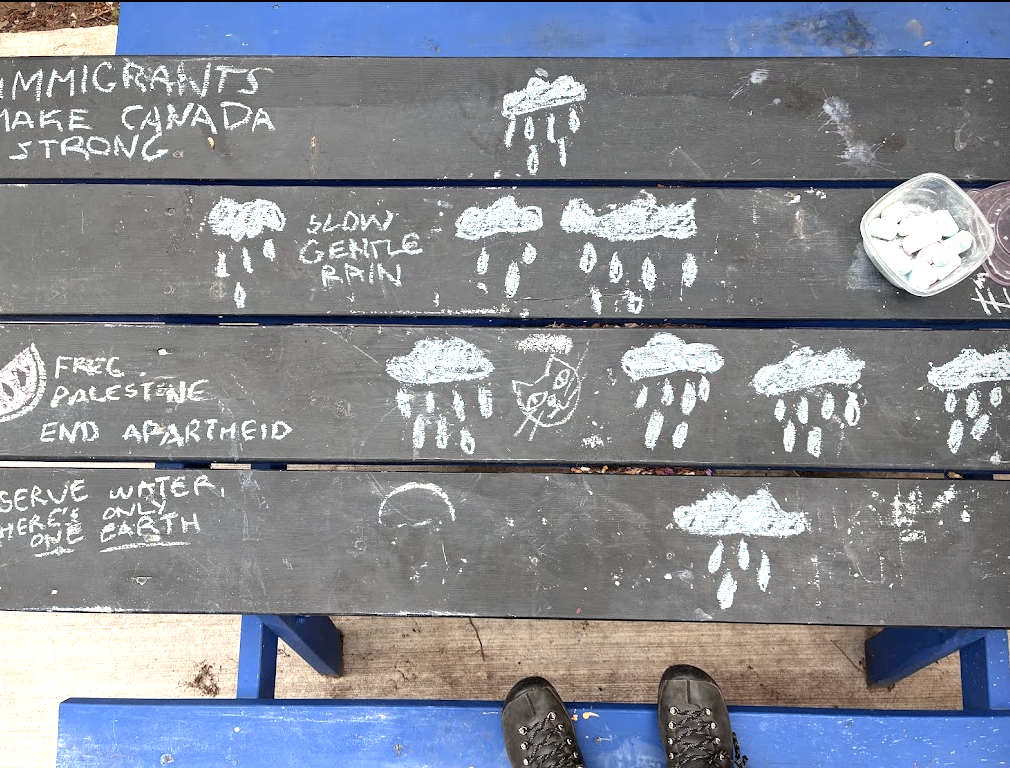 IMMIGRANTS
MAKE CANADA
STRONG
SLOW
GENTLE
RAIN
FREE
PALESTINE
END APARTHEID
SERVE WATER,
HERE'S ONLY
ONE EARTH